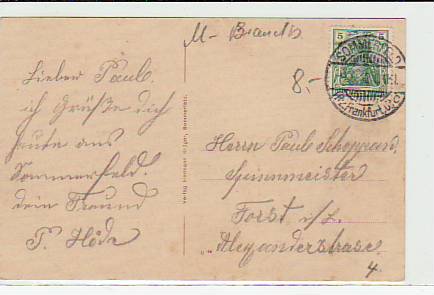 M- Brandts
8.-
5 5
SOMMERFELD
(Bz. Frankfurt, Oder)
Lieber Paul.
ich Grüße dich
heute aus
Sommerfeld.
dein Freund
P. Höde
Verlag Sommerfeld.
Herrn Paul Schoppan,
Spinnmeister
Forst i/L.
Alexanderstrase
4.